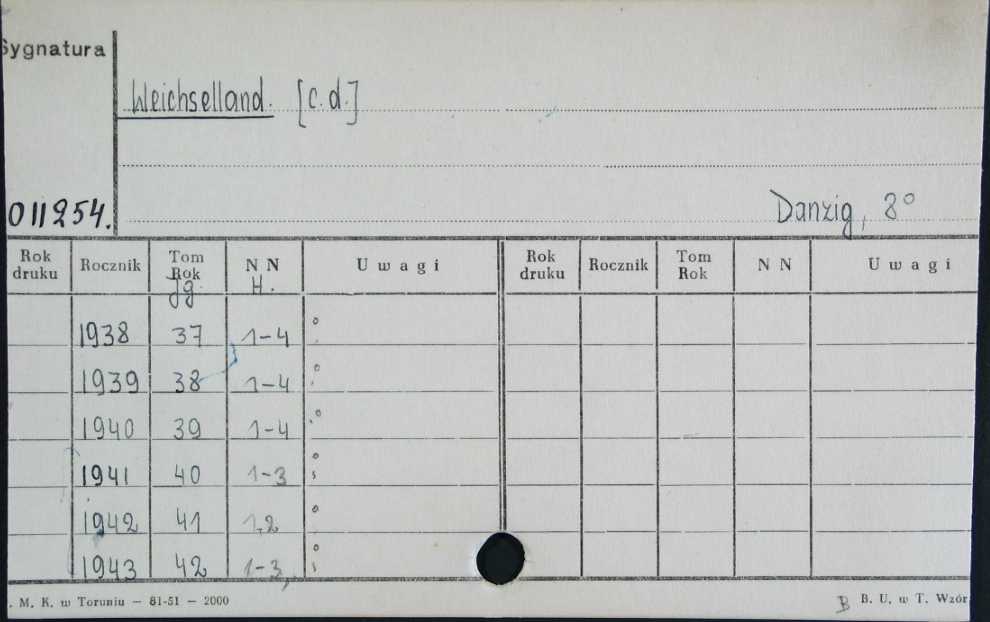 Sygnatura
Weichselland. [c.d.]
011254.
Danzig, 8°
Rok druku Rocznik Tom Rok Jg. N N H. U w a g i Rok druku Rocznik Tom Rok N N U w a g i
1938 37 1-4 °
1939 38 1-4 °
1940 39 1-4 °
1941 40 1-3 °
1942 41 1,2 °
1943 42 1-3, °
. M. K. w Toruniu — 81-51 — 2000
B B. U. w T. Wzór